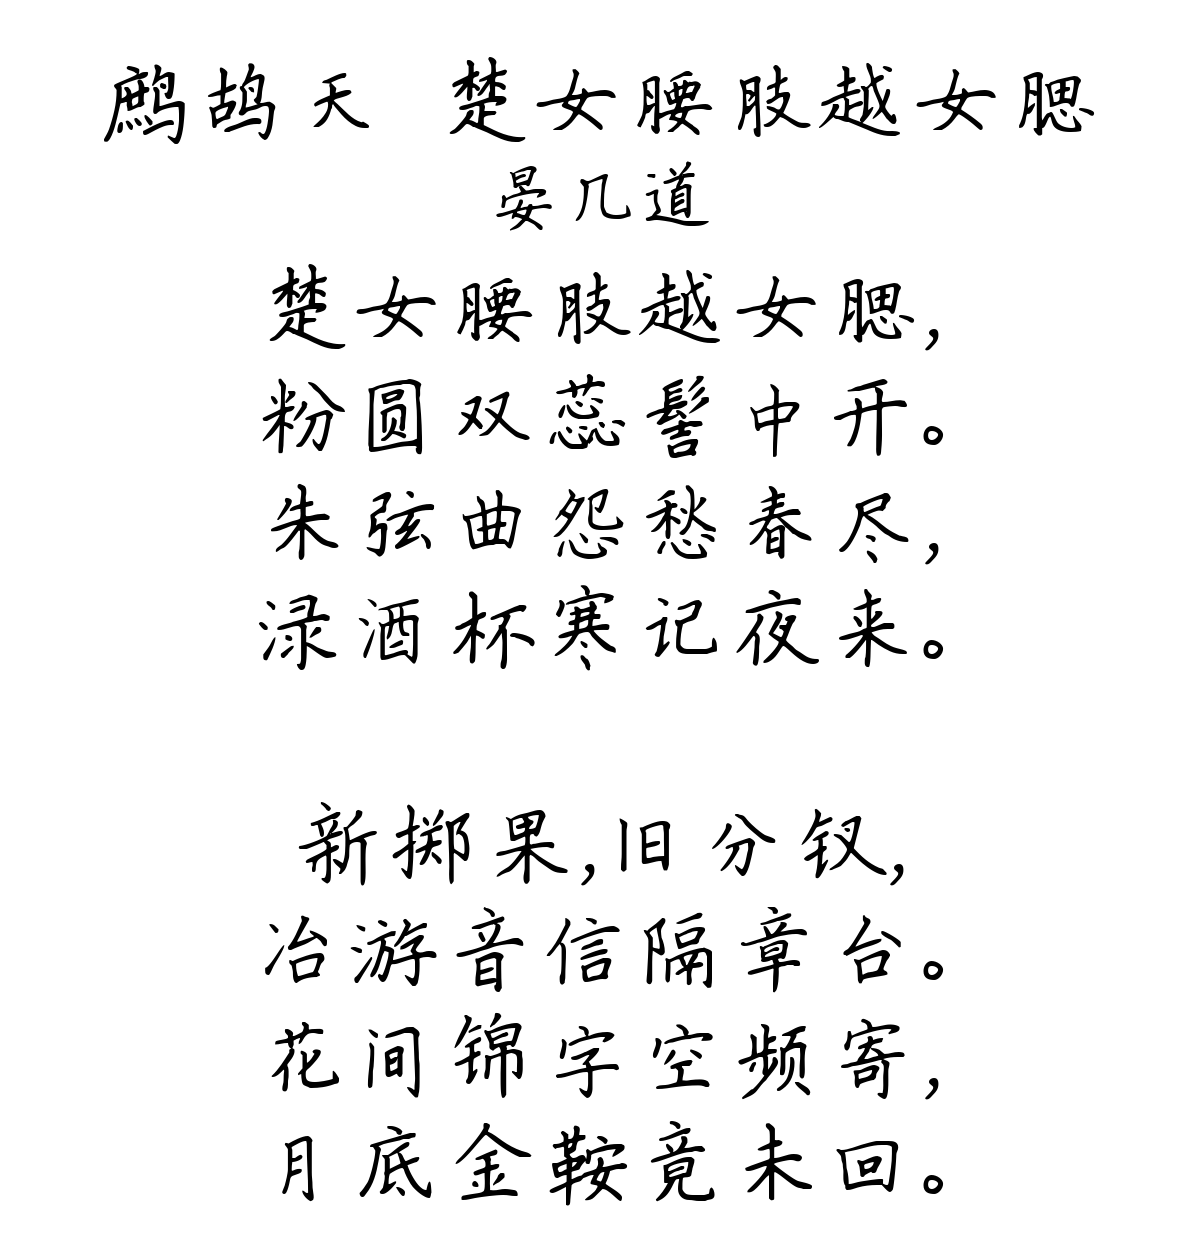 鹧鸪天 楚女腰肢越女腮
晏几道
楚女腰肢越女腮,
粉圆双蕊髻中开。
朱弦曲怨愁春尽,
渌酒杯寒记夜来。
新掷果,旧分钗,
冶游音信隔章台。
花间锦字空频寄,
月底金鞍竟未回。